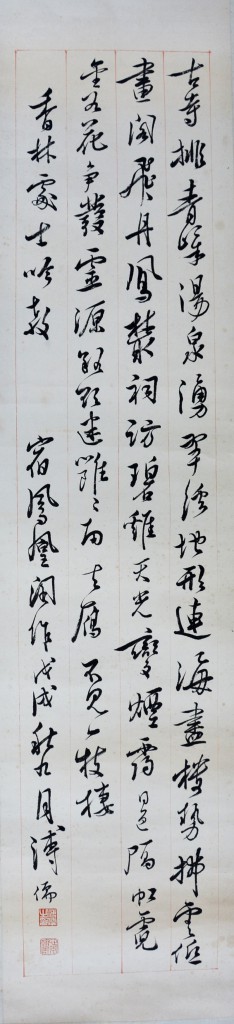 古寺排青嶂湯泉湧翠溪地形連海盡樓勢拂雲低
畫閣飛丹鳳叢祠訪碧雞天光變煙靄邑隔虹霓
金谷花爭發靈源路欲迷雝雝南去雁不見一枝棲
香林處士吟教　宿鳳凰閣作戊戌秋九月溥儒